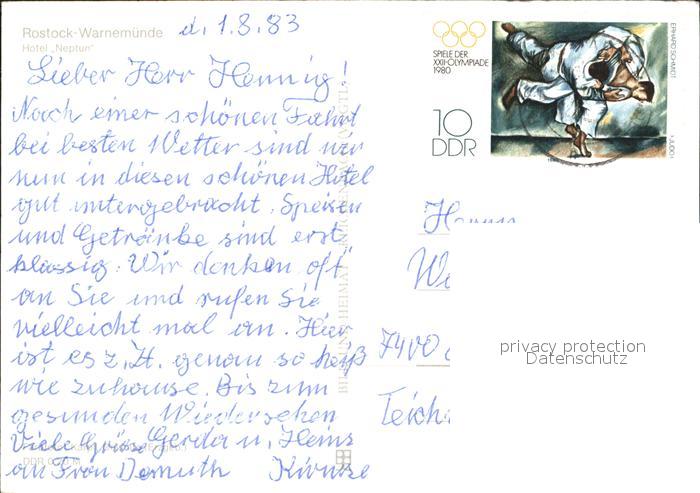 Rostock-Warnemünde
Hotel „Neptun"
d. 1.8.83
Lieber Herr Hennig!
Nach einer schönen Fahrt
bei besten Wetter sind wir
nun in diesen schönen Hotel
gut untergebracht. Speisen
und Getränke sind erst
klassig. Wir denken oft
an Sie und rufen Sie
vielleicht mal an. Hier
ist es z. Zt. genau so heiß
wie zuhause. Bis zum
gesunden Wiedersehen
Viele Grüße Gerda u. Heins
an Frau Demuth
DDR
SPIELE DER
XXII.OLYMPIADE
1980
10
DDR
ERHARD SCHMIDT
»JUDO«
7400
Teich
privacy protection
Datenschutz